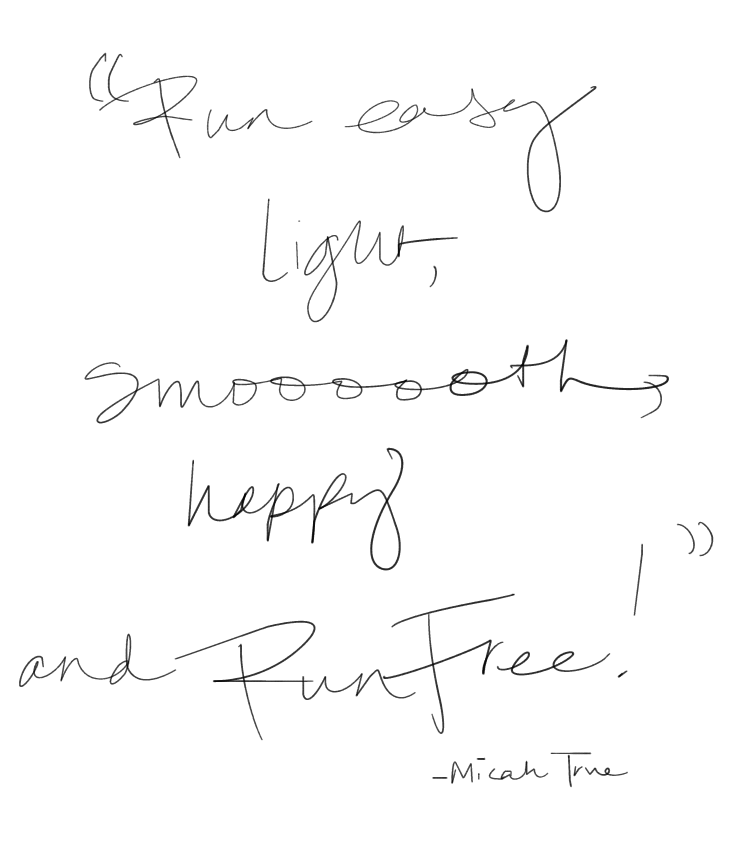 “Run easy
Light,
smoooooth,
happy
and Run Free!”
-Micah True